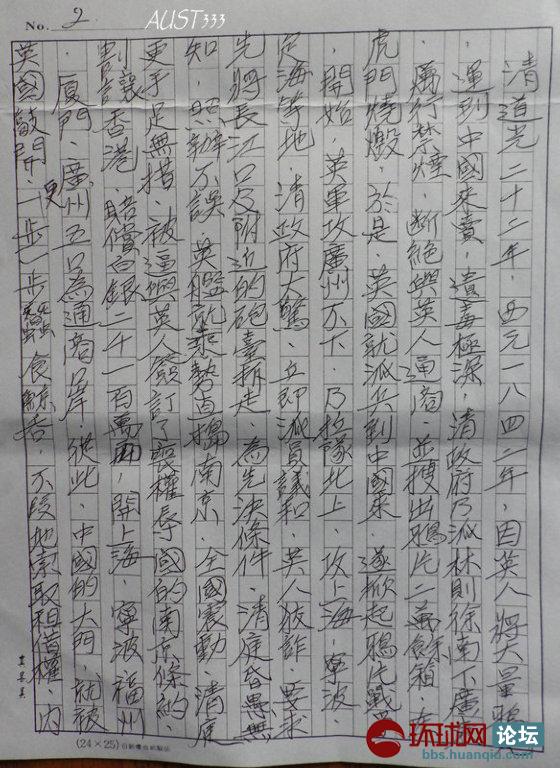 No. 2
AUST333
清道光二十二年，西元一八四二年，因英人將大量鴉片
運到中國來賣，遺毒極深，清政府乃派林則徐南下廣州
，厲行禁煙，斷絕與英人通商，並搜出鴉片二萬餘箱，在
虎門燒燬，於是，英國就派兵到中國來，遂掀起鴉片戰爭
，開始，英軍攻廣州不下，乃拉隊北上，攻上海，寧波，
定海等地，清政府大驚，立即派員議和，英人狡詐，要求
先將長江口及附近的砲臺拆走，為先決條件，清廷昏愚無
知，照辦不誤，英艦就乘勢直搗南京，全國震動，清廷
更手足無措，被逼與英人簽訂了喪權辱國的南京條約，
割讓香港，賠償白銀二千一百萬両，開上海，寧波，福州
，厦門，廣州五口為通商口岸，從此，中國的大門，就被
英國敲開，便一步一步蠶食鯨吞，不段地索取租借權，內
(24×25)
环球网 论坛
bbs.huanqiu.com